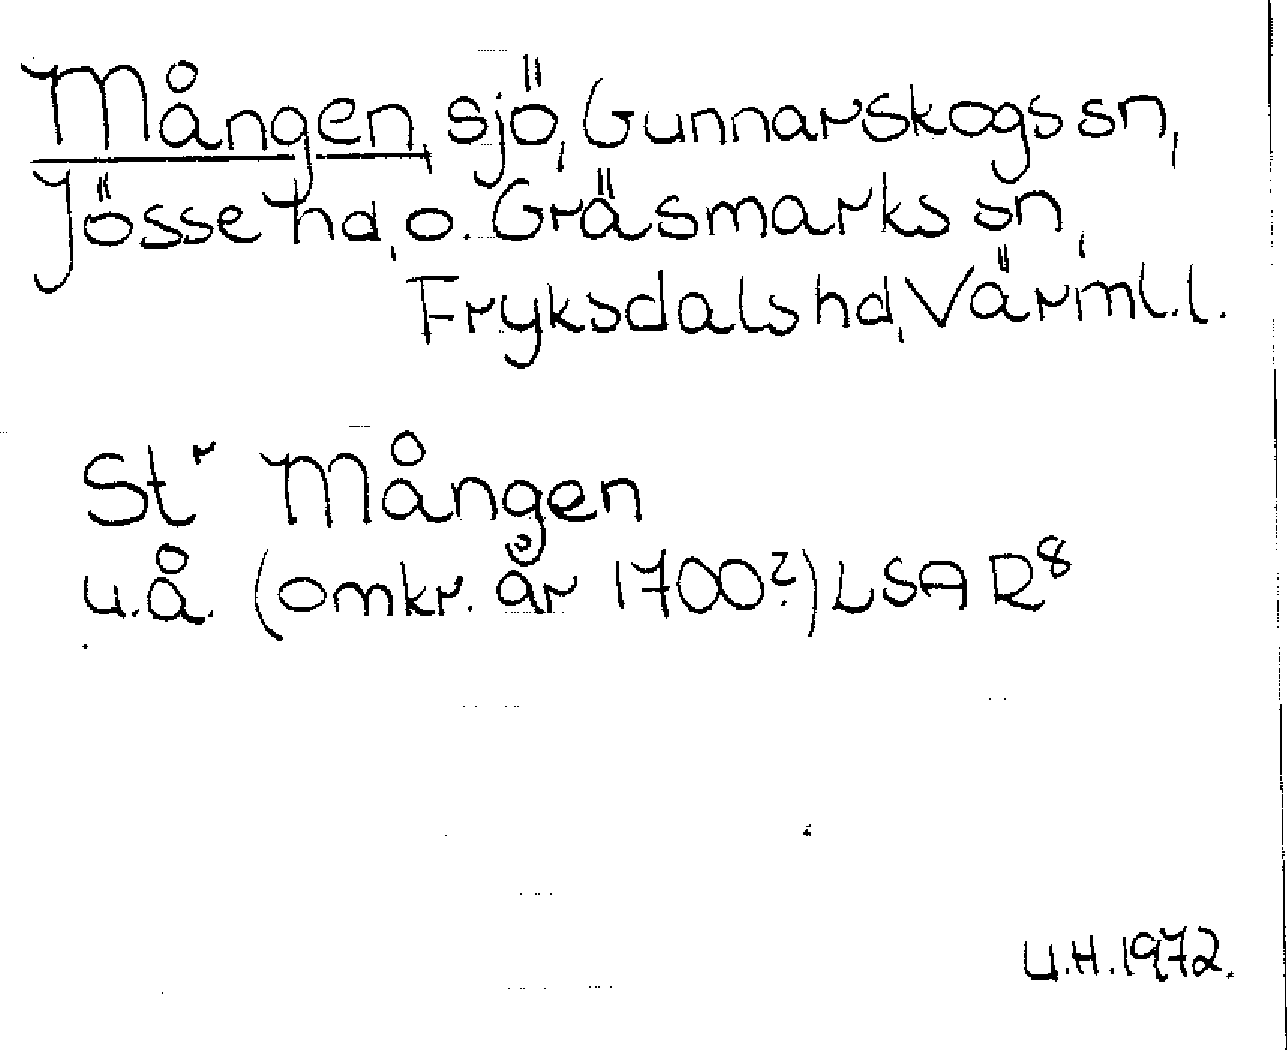 Mången, sjö, Gunnarskogs sn,
Jösse hd, o. Gräsmarks sn,
Fryksdals hd, Värml. l.
Stʳ Mången
u.å. (omkr. år 1700?) LSA R⁸
U.H. 1972.